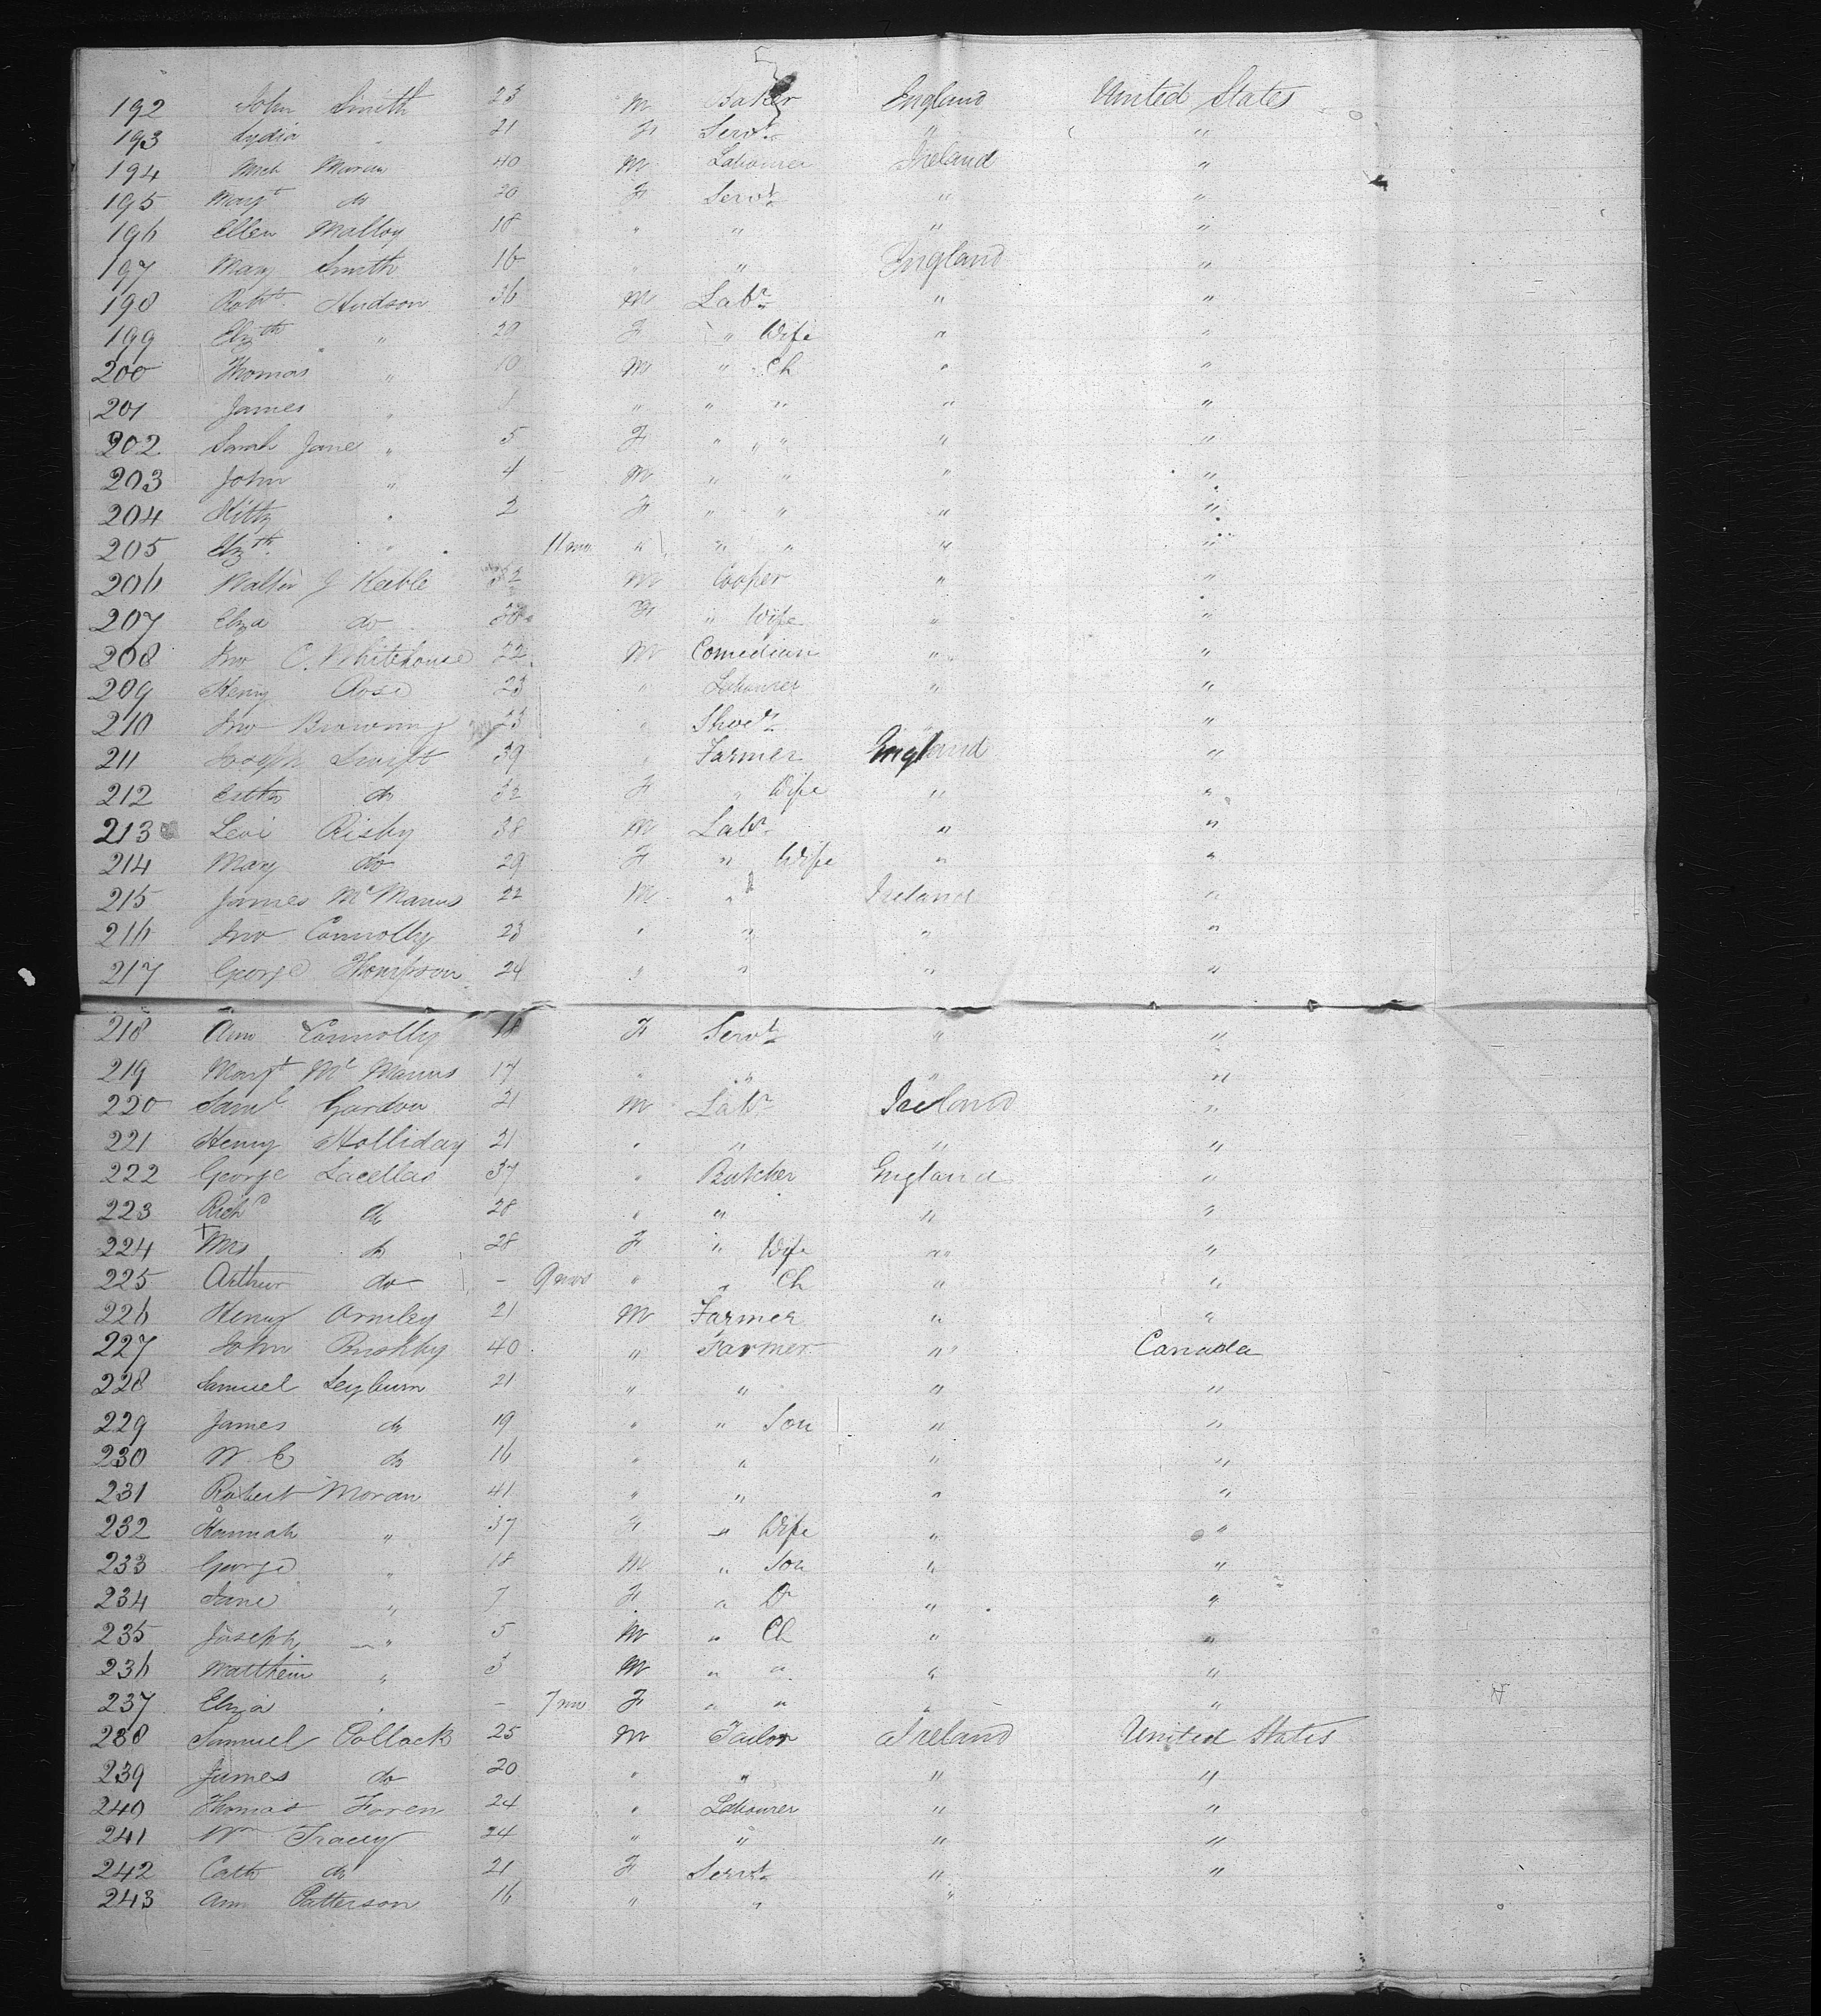 192 John Smith 23 M Baker England United States
193 Lydia " 21 F Servt " "
194 Mich Moran 40 M Labourer Ireland "
195 Margt do 20 F Servt " "
196 Ellen Malloy 18 " " " "
197 Mary Smith 16 " " England "
198 Robt Hudson 36 M Labr " "
199 Elizth " F " Wife " "
200 Thomas " 10 M " Ch " "
201 James " " " " " "
202 Sarah Jane " 5 F " " " "
203 John " 4 M " " " "
204 Kitty " 2 F " " " "
205 Elizth " 11 mos " " " " "
206 J Keeble 32 M Cooper " "
207 Eliza do F " Wife " "
208 Jno C. Whitehouse 22 M Comedian " "
209 Henry Rose 23 " Labourer " "
210 Jno Browning 23 " "
211 Joseph Swift 39 " Farmer England "
212 Esther do 32 F " Wife " "
213 Levi Risby 38 M Labr " "
214 Mary do 29 F " Wife " "
215 James McManus 22 M " Ireland "
216 Jno Connolly 23 " " " "
217 George Thompson 24 " " " "
218 Ann Connolly 18 F Servt " "
219 Margt Mc Manus 17 " " " "
220 Saml Gordon 21 M Labr Ireland "
221 Henry Holliday 21 " " " "
222 George Lacellas 37 " Butcher England "
223 Richd do 28 " " " "
224 Mrs do 28 F " Wife " "
225 Arthur do - 9 mos " " Ch " "
226 Henry 21 M Farmer " "
227 John Bushby 40 " Farmer " Canada
228 Samuel Leyburn 21 " " " "
229 James do 19 " " Son " "
230 W. E do 16 " " " "
231 Robert Moran 41 " " " "
232 Hannah " 37 F " Wife " "
233 George " 18 M " Son " "
234 Jane " 7 F " D " "
235 Joseph " 5 M " Ch " "
236 Matthew " 3 M " " " "
237 Eliza " - 7 mos F " " " "
238 Samuel Pollock 25 M Tailor Ireland United States
239 James do 20 " " " "
240 Thomas Foren 24 " Labourer " "
241 Wm Tracey 24 " " " "
242 Cath do 21 F Servt " "
243 Ann Patterson 16 " " "